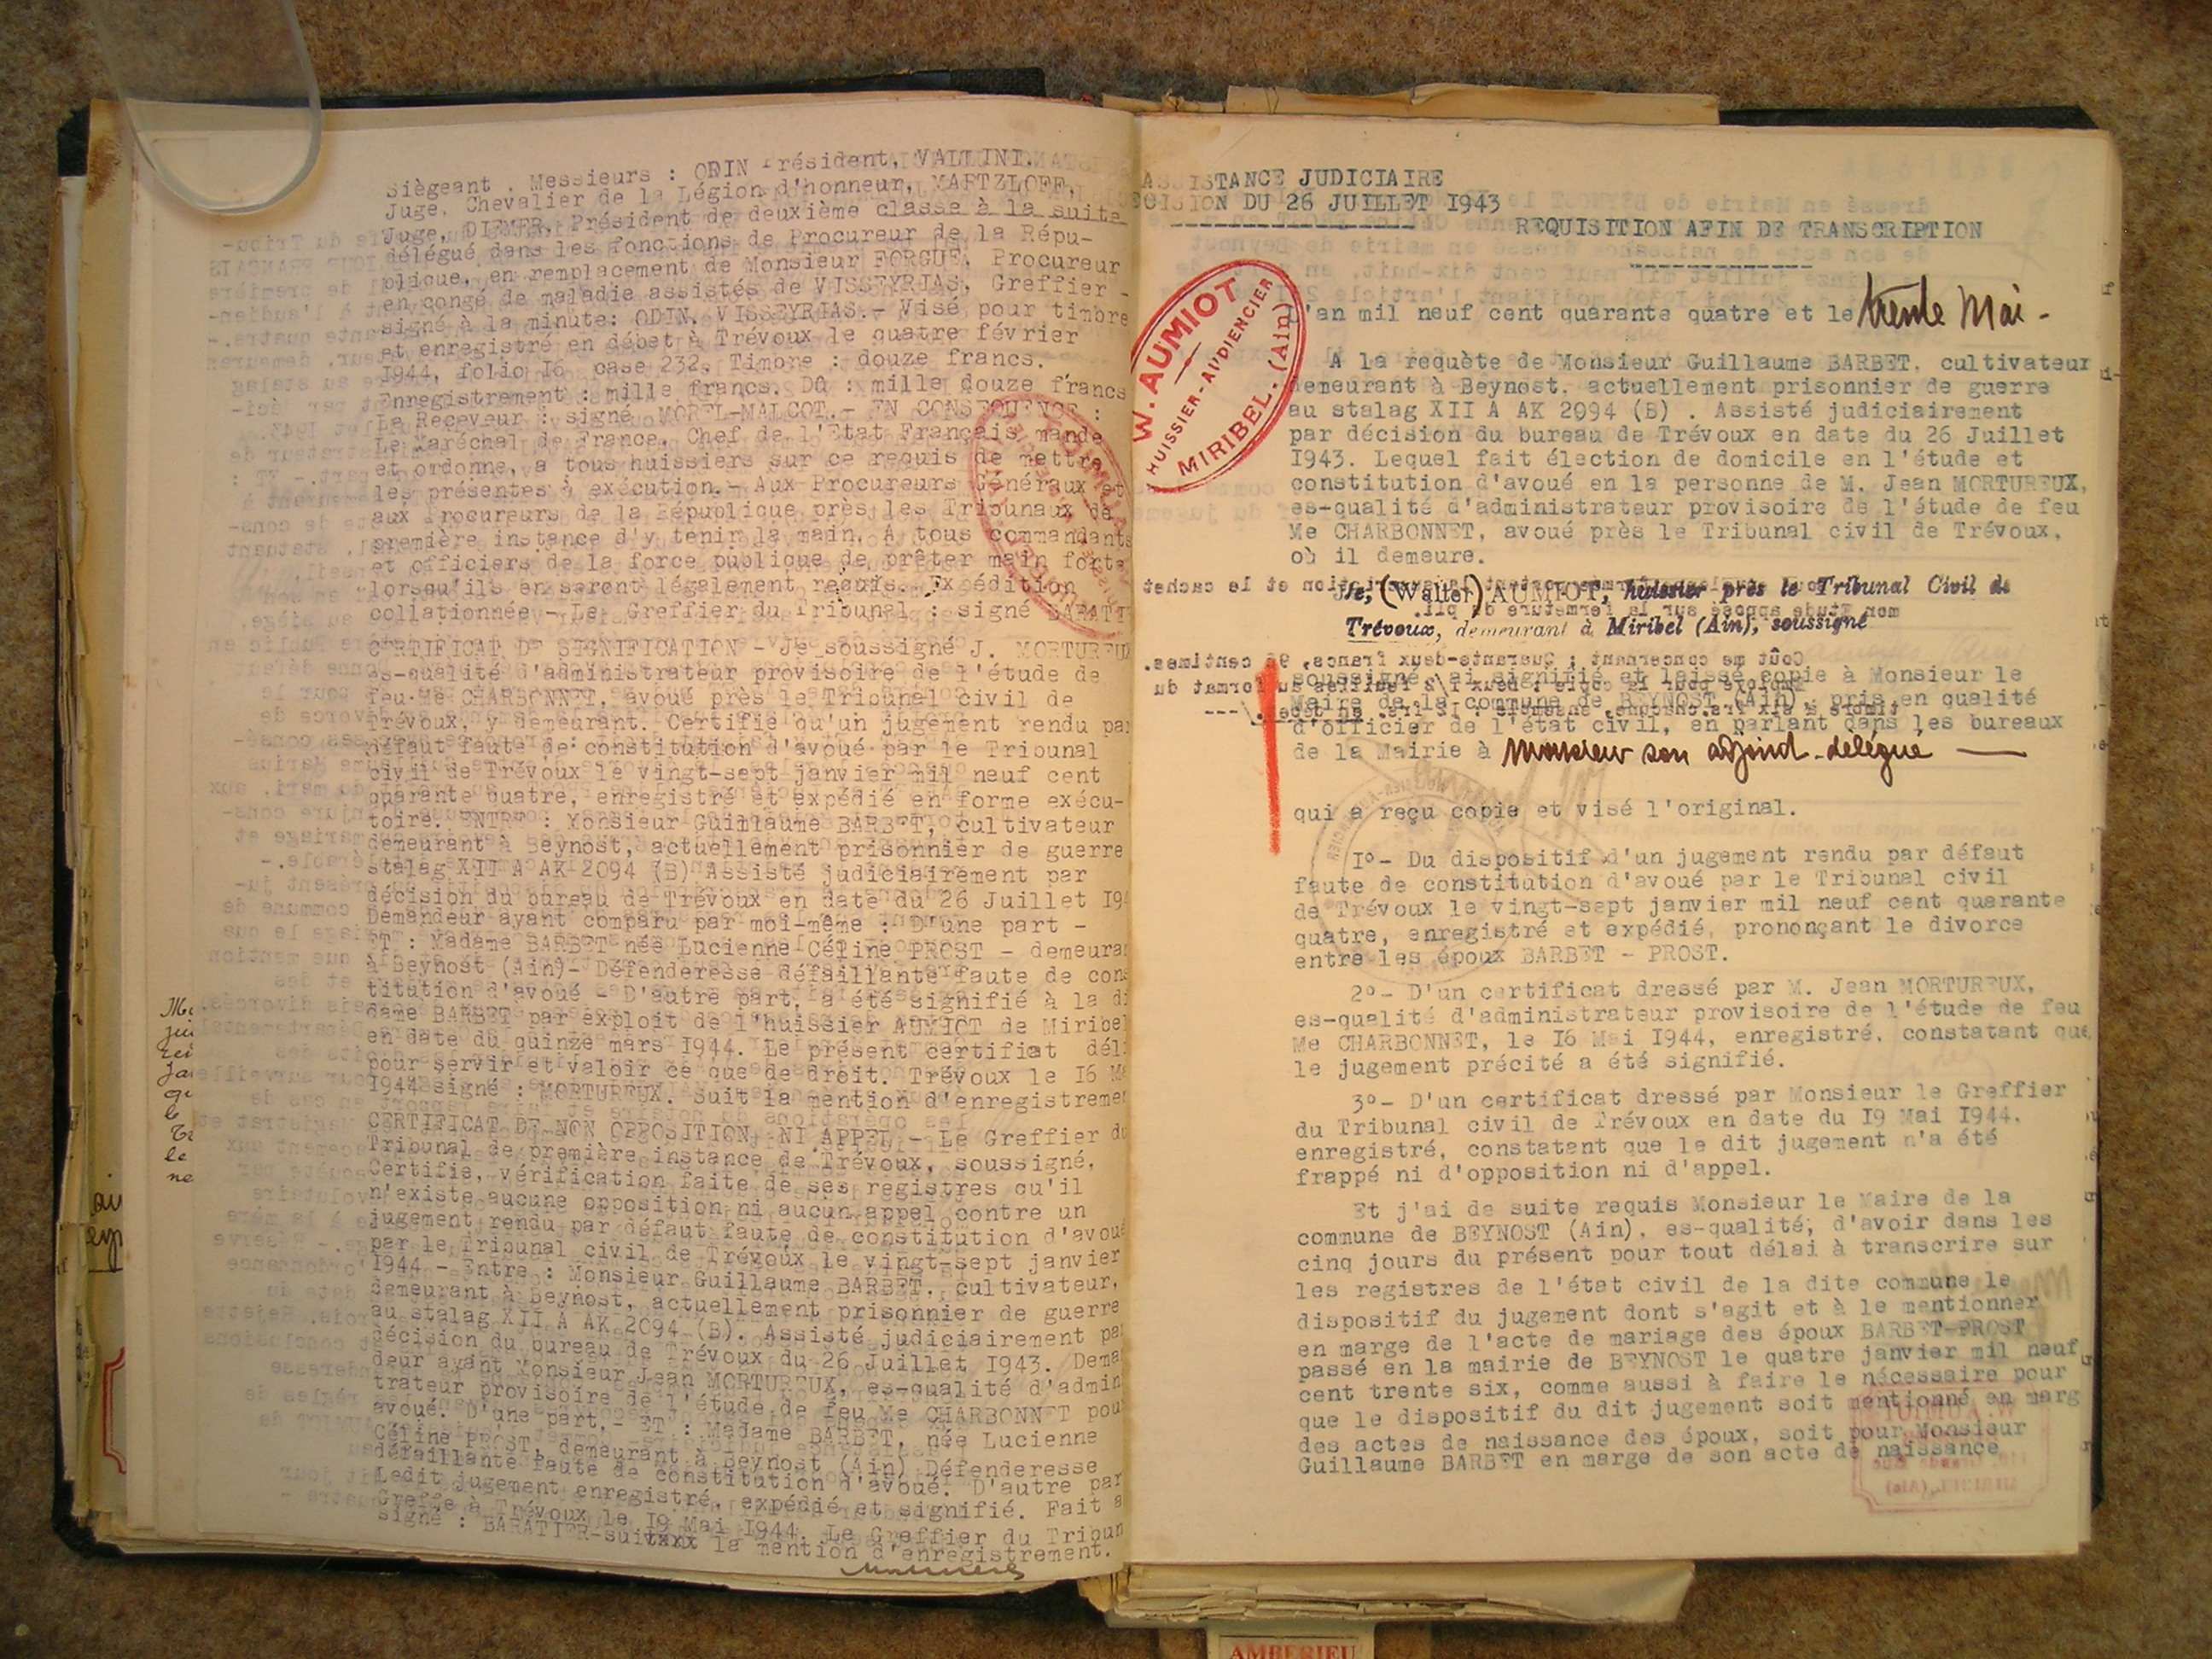 Siègeant . Messieurs : ODIN Président, VALLINI.
Juge, Chevalier de la Légion d'honneur, MARTZLOFF,
Juge, DIEMER, Président de deuxième classe à la suite
délégué dans les fonctions de Procureur de la Répu-
plique, en remplacement de Monsieur FORGUE, Procureur
en congé de maladie assistés de VISSEYRIAS, Greffier -
signé à la minute: ODIN, VISSEYRIAS.- Visé pour timbre
et enregistré en débet à Trévoux le quatre février
1944, folio I6 case 232. Timbre : douze francs.
Enregistrement : mille francs. Dû : mille douze francs
Le Receveur : signé MOREL-MALCOT.- EN CONSEQUENCE :
Le Maréchal de France, Chef de l'Etat Français mande
et ordonne, a tous huissiers sur ce requis de mettre
les présentes à exécution.- Aux Procureurs Généraux et
aux Procureurs de la République près les Tribunaux de
première instance d'y tenir la main. A tous commandants
et officiers de la force publique de prêter main forte
lorsqu'ils en seront légalement requis. Expédition
collationnée - Le Greffier du Tribunal : signé BARATI
CERTIFICAT DE SIGNIFICATION - Je soussigné J. MORTUREUX
es-qualité d'administrateur provisoire de l'étude de
feu Me CHARBONNET, avoué près le Tribunal civil de
Trévoux, y demeurant. Certifie qu'un jugement rendu par
défaut faute de constitution d'avoué par le Tribunal
civil de Trévoux le vingt-sept janvier mil neuf cent
quarante quatre, enregistré et expédié en forme exécu-
toire. ENTRE : Monsieur Guillaume BARBET, cultivateur
demeurant à Beynost, actuellement prisonnier de guerre
stalag XII A AK 2094 (B) Assisté judiciairement par
décision du bureau de Trévoux en date du 26 Juillet 194
Demandeur ayant comparu par moi-même : D'une part -
ET : Madame BARBET née Lucienne Céline PROST - demeuran
à Beynost (Ain)- Défenderesse défaillante faute de cons
titution d'avoué - D'autre part, a été signifié à la di
dame BARBET par exploit de l'huissier AUMIOT de Miribel
en date du quinze mars 1944. Le présent certifiat déli
pour servir et valoir ce que de droit. Trévoux le I6 Ma
1944 signé : MORTUREUX. Suit la mention d'enregistremen
CERTIFICAT DE NON OPPOSITION, NI APPEL - Le Greffier du
Tribunal de première instance de Trévoux, soussigné,
Certifie, vérification faite de ses registres qu'il
n'existe aucune opposition ni aucun appel contre un
jugement rendu par défaut faute de constitution d'avoué
par le Tribunal civil de Trévoux le vingt-sept janvier
1944 - Entre : Monsieur Guillaume BARBET, cultivateur,
demeurant à Beynost, actuellement prisonnier de guerre
au stalag XII A AK 2094 (B). Assisté judiciairement pa
décision du bureau de Trévoux du 26 Juillet 1943. Deman
deur ayant Monsieur Jean MORTUREUX, es-qualité d'admin
trateur provisoire de l'étude de feu Me CHARBONNET pou
avoué. D'une part.- ET : Madame BARBET, née Lucienne
Céline PROST, demeurant à Beynost (Ain) Défenderesse
défaillante faute de constitution d'avoué. D'autre par
Ledit jugement enregistré, expédié et signifié. Fait a
Greffe à Trévoux le I9 Mai 1944. Le Greffier du Tribun
signé : BARATIER-suitxxx la mention d'enregistrement.
ASSISTANCE JUDICIAIRE
DECISION DU 26 JUILLET I943
REQUISITION AFIN DE TRANSCRIPTION
W. AUMIOT
HUISSIER-AUDIENCIER
MIRIBEL. (Ain)
L'an mil neuf cent quarante quatre et le trente Mai -
A la requète de Monsieur Guillaume BARBET, cultivateur
demeurant à Beynost, actuellement prisonnier de guerre
au stalag XII A AK 2094 (B) . Assisté judiciairement
par décision du bureau de Trévoux en date du 26 Juillet
I943. Lequel fait élection de domicile en l'étude et
constitution d'avoué en la personne de M. Jean MORTUREUX,
es-qualité d'administrateur provisoire de l'étude de feu
Me CHARBONNET, avoué près le Tribunal civil de Trévoux,
où il demeure.
Je, (Walter) AUMIOT, huissier près le Tribunal Civil de
Trévoux, demeurant à Miribel (Ain), soussigné
soussigné, ai signifié et laissé copie à Monsieur le
Maire de la commune de BEYNOST (Ain), pris en qualité
d'officier de l'état civil, en parlant dans les bureaux
de la Mairie à Monsieur son adjoint-délégué —
qui a reçu copie et visé l'original.
I°- Du dispositif d'un jugement rendu par défaut
faute de constitution d'avoué par le Tribunal civil
de Trévoux le vingt-sept janvier mil neuf cent quarante
quatre, enregistré et expédié, prononçant le divorce
entre les époux BARBET - PROST.
2°- D'un certificat dressé par M. Jean MORTUREUX,
es-qualité d'administrateur provisoire de l'étude de feu
Me CHARBONNET, le I6 Mai I944, enregistré, constatant que
le jugement précité a été signifié.
3°- D'un certificat dressé par Monsieur le Greffier
du Tribunal civil de Trévoux en date du I9 Mai I944,
enregistré, constatant que le dit jugement n'a été
frappé ni d'opposition ni d'appel.
Et j'ai de suite requis Monsieur le Maire de la
commune de BEYNOST (Ain), es-qualité, d'avoir dans les
cinq jours du présent pour tout délai à transcrire sur
les registres de l'état civil de la dite commune le
dispositif du jugement dont s'agit et à le mentionner
en marge de l'acte de mariage des époux BARBET-PROST
passé en la mairie de BEYNOST le quatre janvier mil neuf
cent trente six, comme aussi à faire le nécessaire pour
que le dispositif du dit jugement soit mentionné en marg
des actes de naissance des époux, soit pour Monsieur
Guillaume BARBET en marge de son acte de naissance
AMBERIEU